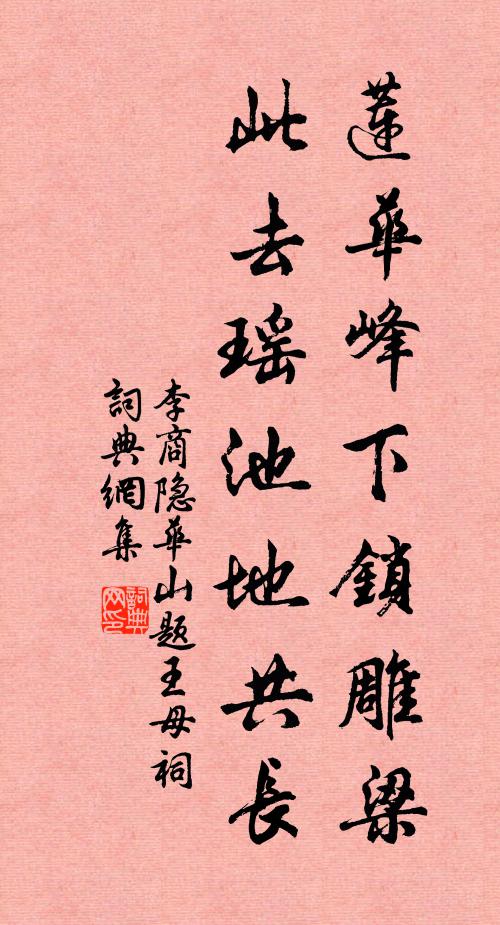 蓮華峰下鎖雕梁
此去瑶池地共長
李商隐華山題王母祠
詞典網集
詞典网印